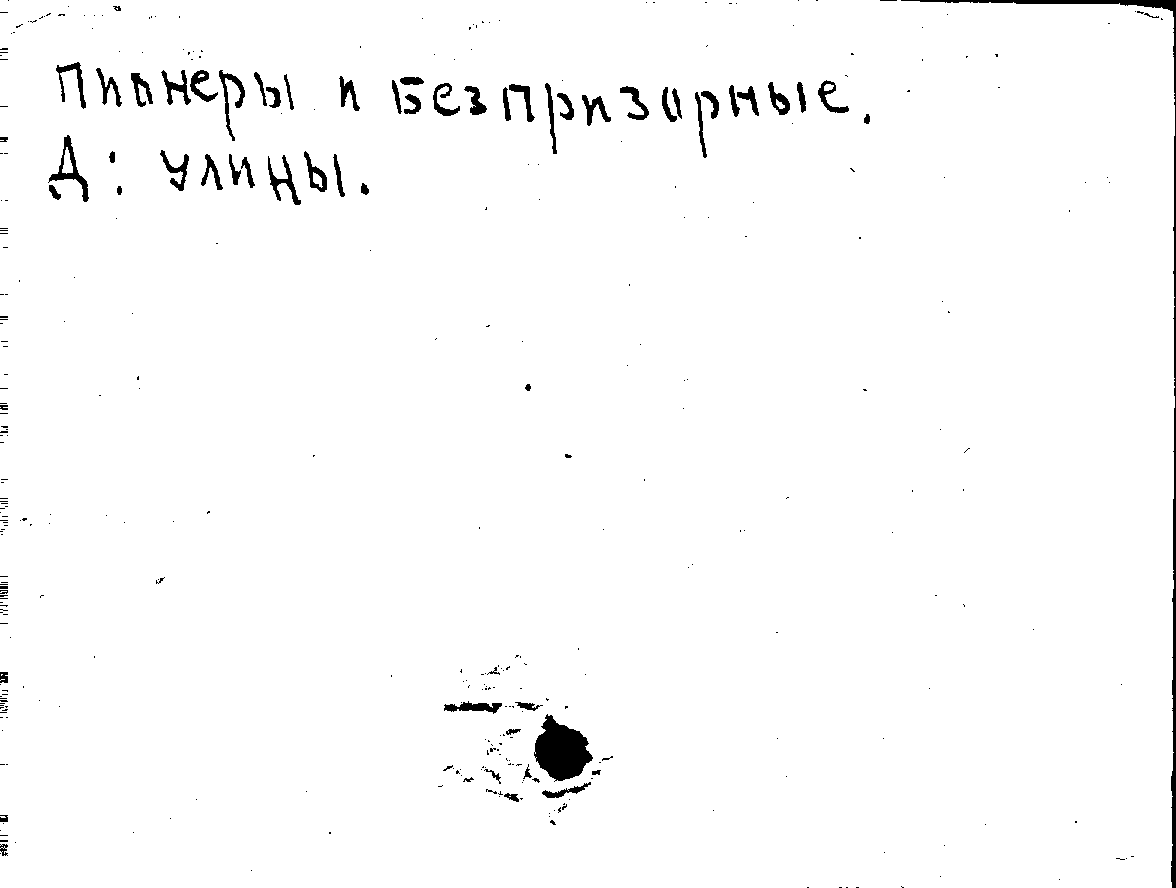 Пионеры и Безпризорные.
Д: улицы.